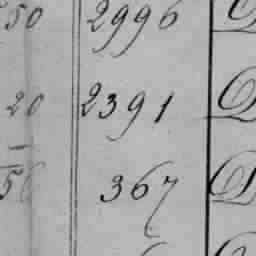 50 2996 D
20 2391 D
56 367 D